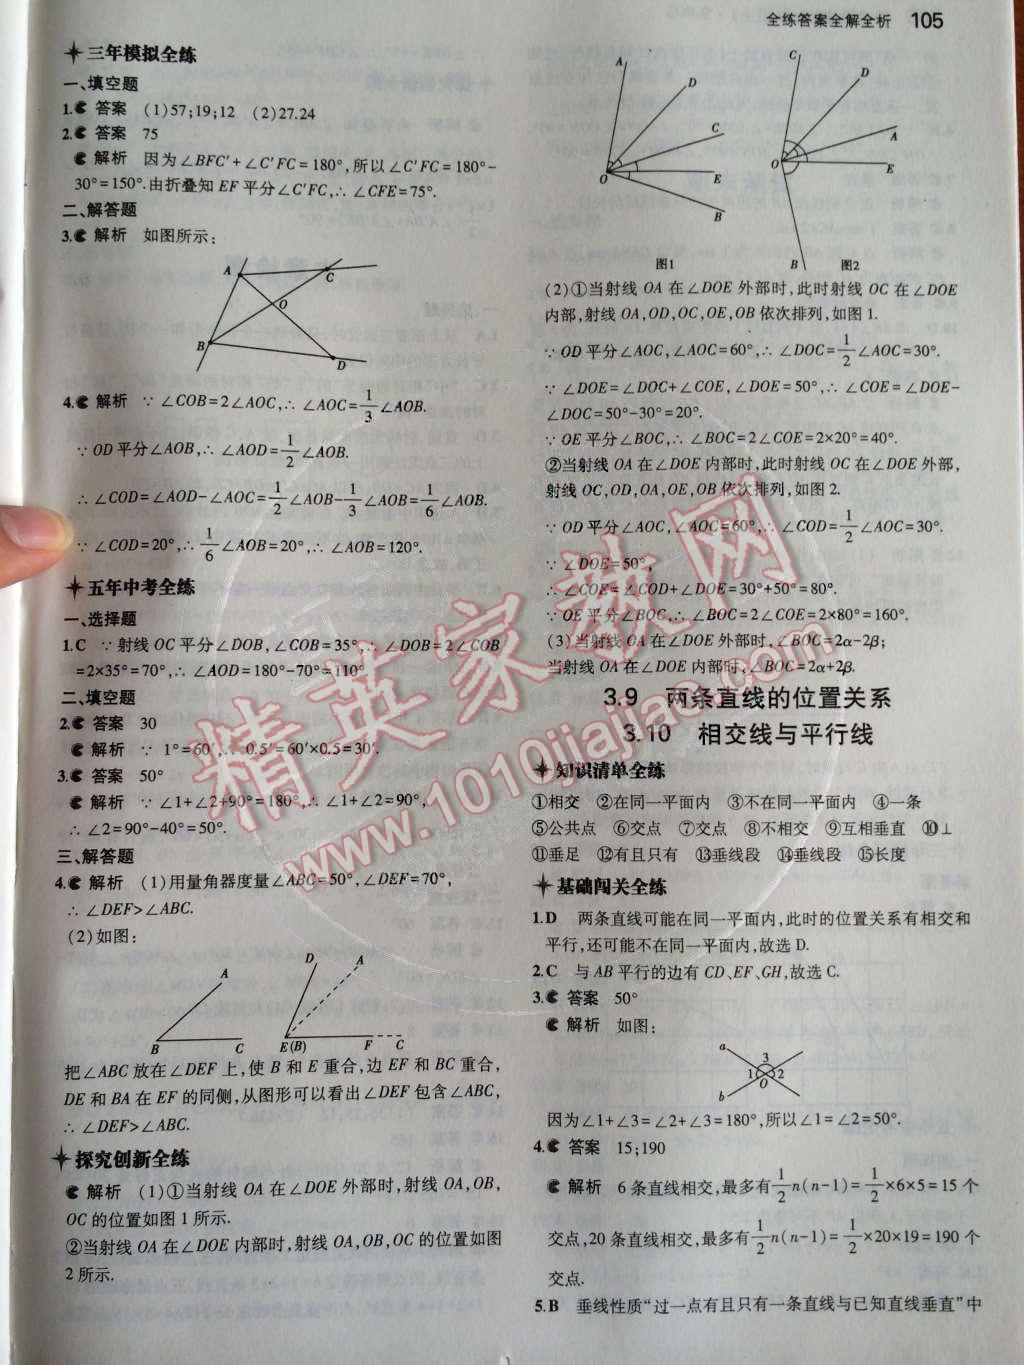 全练答案全解全析 105
三年模拟全练
一、填空题
1. 答案 (1)57;19;12 (2)27.24
2. 答案 75
解析 因为∠BFC′+∠C′FC=180°,所以∠C′FC=180°-
30°=150°.由折叠知EF平分∠C′FC,∴∠CFE=75°.
二、解答题
3. 解析 如图所示:
A
C
O
B
D
4. 解析 ∵∠COB=2∠AOC,∴∠AOC=1/3∠AOB.
∵OD平分∠AOB,∴∠AOD=1/2∠AOB.
∴∠COD=∠AOD-∠AOC=1/2∠AOB-1/3∠AOB=1/6∠AOB.
∵∠COD=20°,∴1/6∠AOB=20°,∴∠AOB=120°.
五年中考全练
一、选择题
1.C ∵射线OC平分∠DOB,∠COB=35°,∴∠DOB=2∠COB
=2×35°=70°,∴∠AOD=180°-70°=110°.
二、填空题
2. 答案 30
解析 ∵1°=60′,∴0.5°=60′×0.5=30′.
3. 答案 50°
解析 ∵∠1+∠2+90°=180°,∴∠1+∠2=90°,
∴∠2=90°-40°=50°.
三、解答题
4. 解析 (1)用量角器度量∠ABC=50°,∠DEF=70°,
∴∠DEF>∠ABC.
(2)如图:
A
B C
D A
E(B) F C
把∠ABC放在∠DEF上,使B和E重合,边EF和BC重合,
DE和BA在EF的同侧,从图形可以看出∠DEF包含∠ABC,
∴∠DEF>∠ABC.
探究创新全练
解析 (1)①当射线OA在∠DOE外部时,射线OA,OB,
OC的位置如图1所示.
②当射线OA在∠DOE内部时,射线OA,OB,OC的位置如图
2所示.
A
D
C
O
E
B
图1
C
D
A
O
E
B
图2
(2)①当射线OA在∠DOE外部时,此时射线OC在∠DOE
内部,射线OA,OD,OC,OE,OB依次排列,如图1.
∵OD平分∠AOC,∠AOC=60°,∴∠DOC=1/2∠AOC=30°.
∵∠DOE=∠DOC+∠COE,∠DOE=50°,∴∠COE=∠DOE-
∠DOC=50°-30°=20°.
∵OE平分∠BOC,∴∠BOC=2∠COE=2×20°=40°.
②当射线OA在∠DOE内部时,此时射线OC在∠DOE外部,
射线OC,OD,OA,OE,OB依次排列,如图2.
∵OD平分∠AOC,∠AOC=60°,∴∠COD=1/2∠AOC=30°.
∵∠DOE=50°,
∴∠COE=∠COD+∠DOE=30°+50°=80°.
∵OE平分∠BOC,∴∠BOC=2∠COE=2×80°=160°.
(3)当射线OA在∠DOE外部时,∠BOC=2α-2β;
当射线OA在∠DOE内部时,∠BOC=2α+2β.
3.9 两条直线的位置关系
3.10 相交线与平行线
知识清单全练
①相交 ②在同一平面内 ③不在同一平面内 ④一条
⑤公共点 ⑥交点 ⑦交点 ⑧不相交 ⑨互相垂直 ⑩⊥
⑪垂足 ⑫有且只有 ⑬垂线段 ⑭垂线段 ⑮长度
基础闯关全练
1.D 两条直线可能在同一平面内,此时的位置关系有相交和
平行,还可能不在同一平面内,故选D.
2.C 与AB平行的边有CD、EF、GH,故选C.
3. 答案 50°
解析 如图:
a
3
1 2
O
b
因为∠1+∠3=∠2+∠3=180°,所以∠1=∠2=50°.
4. 答案 15;190
解析 6条直线相交,最多有1/2n(n-1)=1/2×6×5=15个
交点,20条直线相交,最多有1/2n(n-1)=1/2×20×19=190个
交点.
5.B 垂线性质“过一点有且只有一条直线与已知直线垂直”中
精英家教网
www.1010jiajiao.com